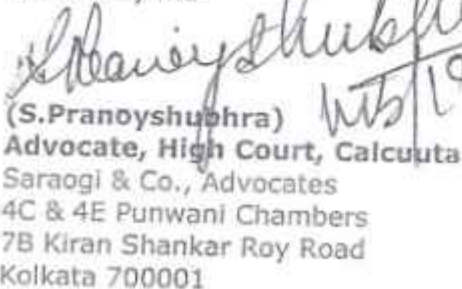 (S.Pranoyshubhra)
Advocate, High Court, Calcuuta
Saraogi & Co., Advocates
4C & 4E Punwani Chambers
7B Kiran Shankar Roy Road
Kolkata 700001